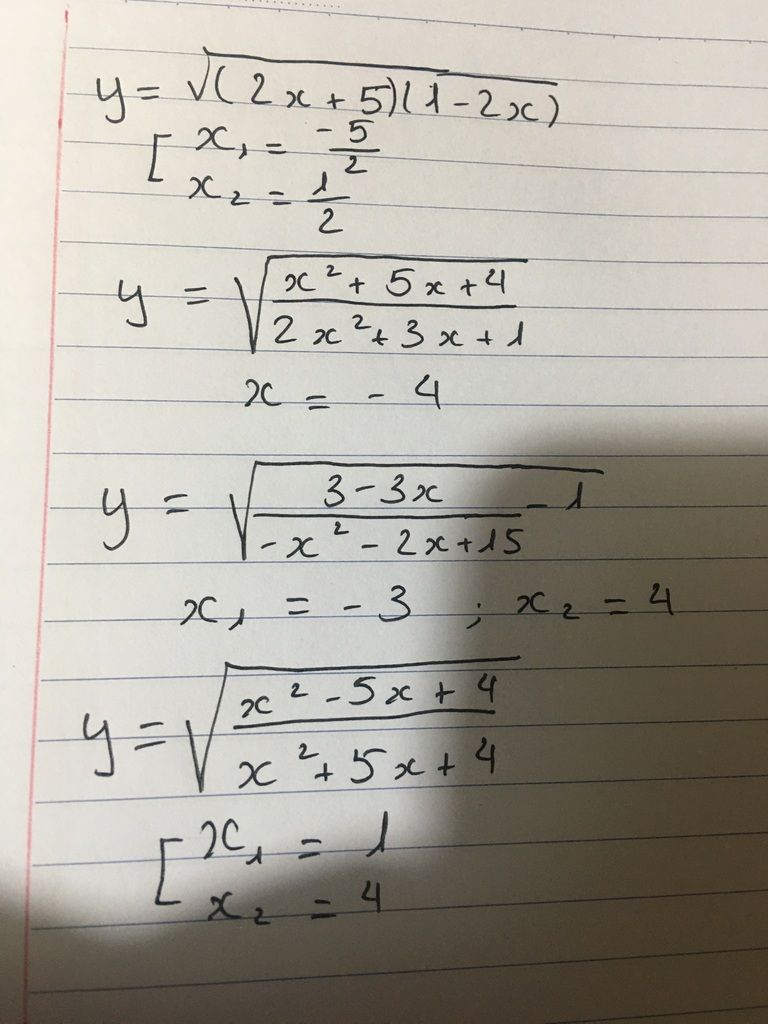 y = √((2x+5)(1-2x))
[ x₁ = -5/2
x₂ = 1/2
y = √((x²+5x+4)/(2x²+3x+1))
x = -4
y = √((3-3x)/(-x²-2x+15) - 1)
x₁ = -3 ; x₂ = 4
y = √((x²-5x+4)/(x²+5x+4))
[ x₁ = 1
x₂ = 4